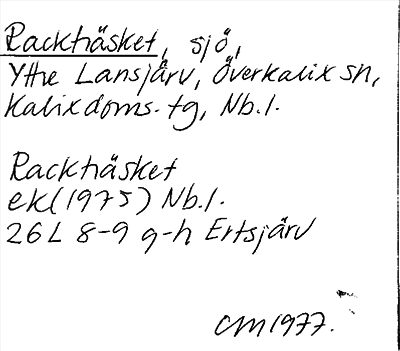 Rackträsket, sjö,
Yttre Lansjärv, Överkalix sn,
Kalix doms. tg, Nb.l.
Rackträsket
ek(1975) Nb.l.
26L 8-9 g-h Ertsjärv
CM 1977.